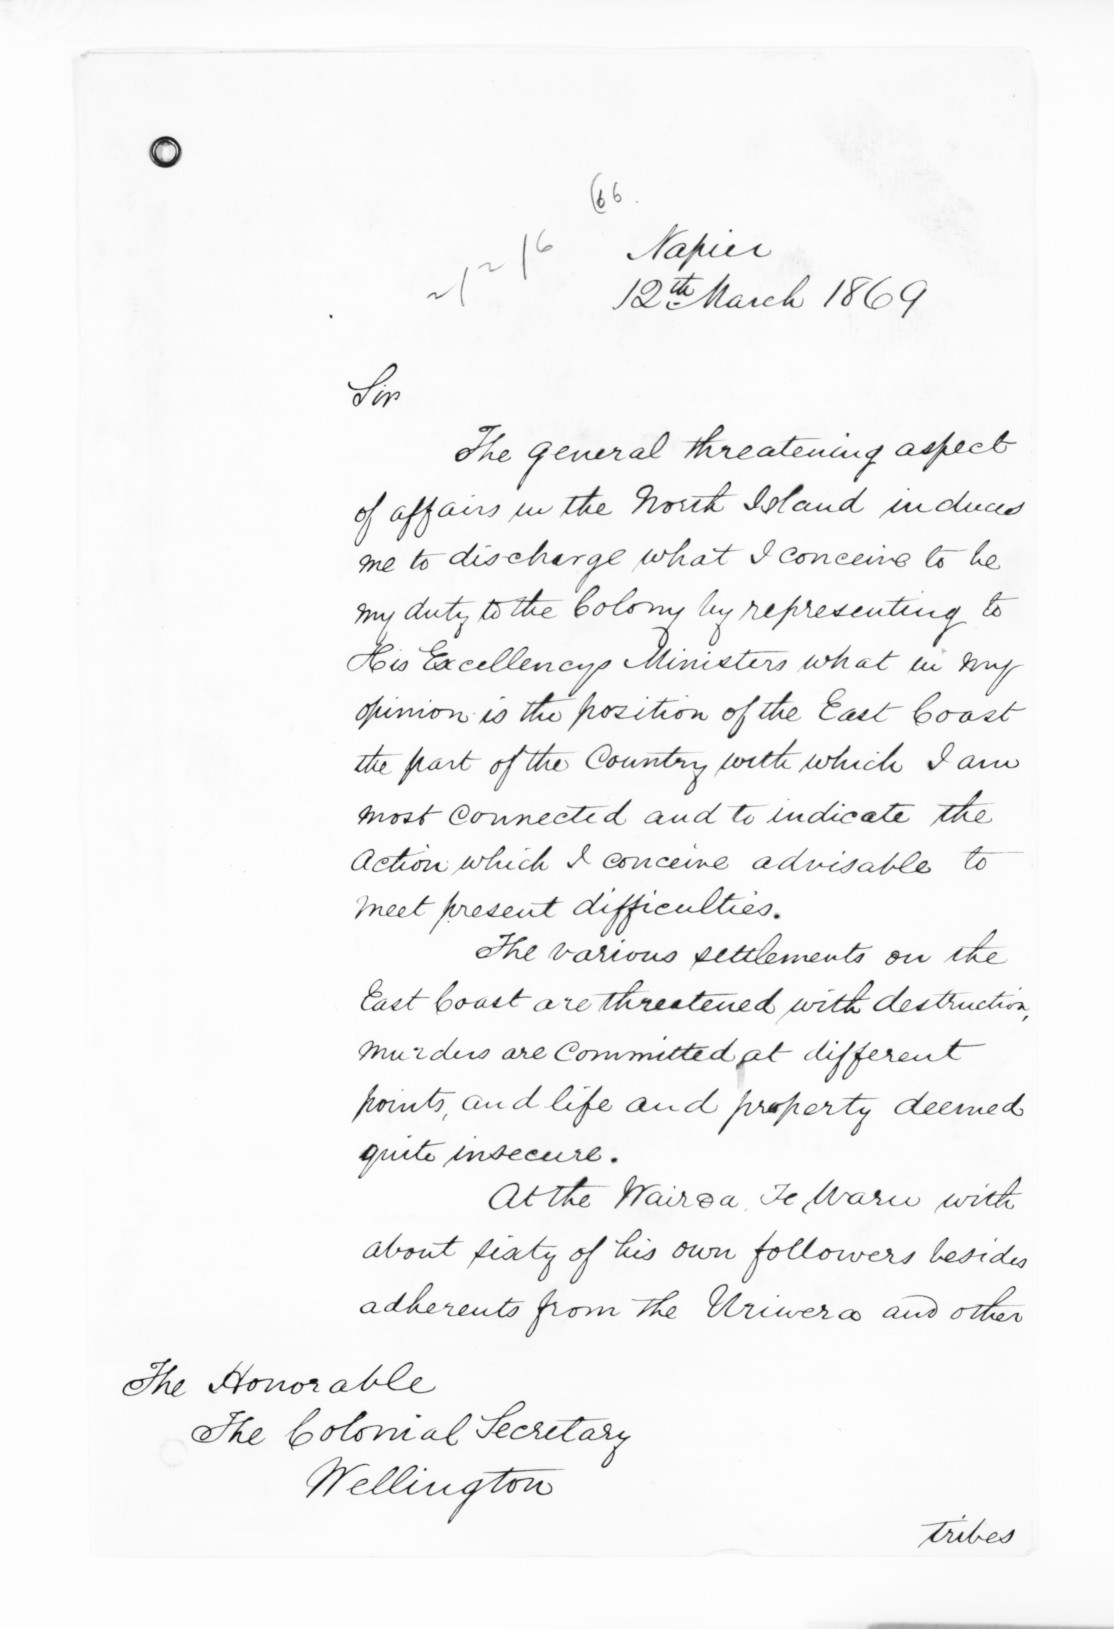 66.
Napier
12th March 1869
Sir
The general threatening aspect
of affairs in the North Island induces
me to discharge what I conceive to be
my duty to the Colony by representing to
His Excellencys Ministers what in my
opinion is the position of the East Coast
the part of the Country with which I am
most connected and to indicate the
action which I conceive advisable to
meet present difficulties.
The various settlements on the
East Coast are threatened with destruction,
murders are committed at different
points, and life and property deemed
quite insecure.
At the Wairoa Te Waru with
about sixty of his own followers besides
adherents from the Uriwera and other
The Honorable
The Colonial Secretary
Wellington
tribes